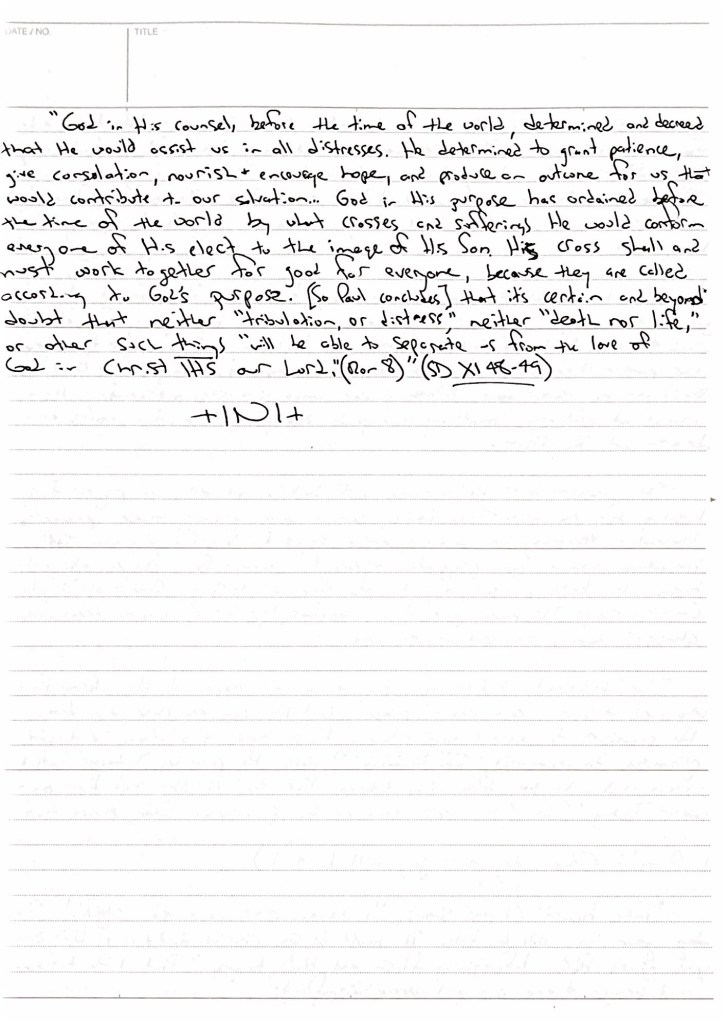 DATE / NO.
TITLE
"God in His counsel, before the time of the world, determined and decreed
that He would assist us in all distresses. He determined to grant patience,
give consolation, nourish + encourage hope, and produce an outcome for us that
would contribute to our salvation... God in His purpose has ordained before
the time of the world by what crosses and sufferings He would conform
every one of His elect to the image of His Son. His cross shall and
must work together for good for everyone, because they are called
according to God's purpose. [So Paul concludes] that it's certain and beyond
doubt that neither "tribulation, or distress," neither "death nor life,"
or other such things "will be able to separate us from the love of
God in Christ IHS our Lord." (Rom 8)" (SD XI 48-49)
+INI+